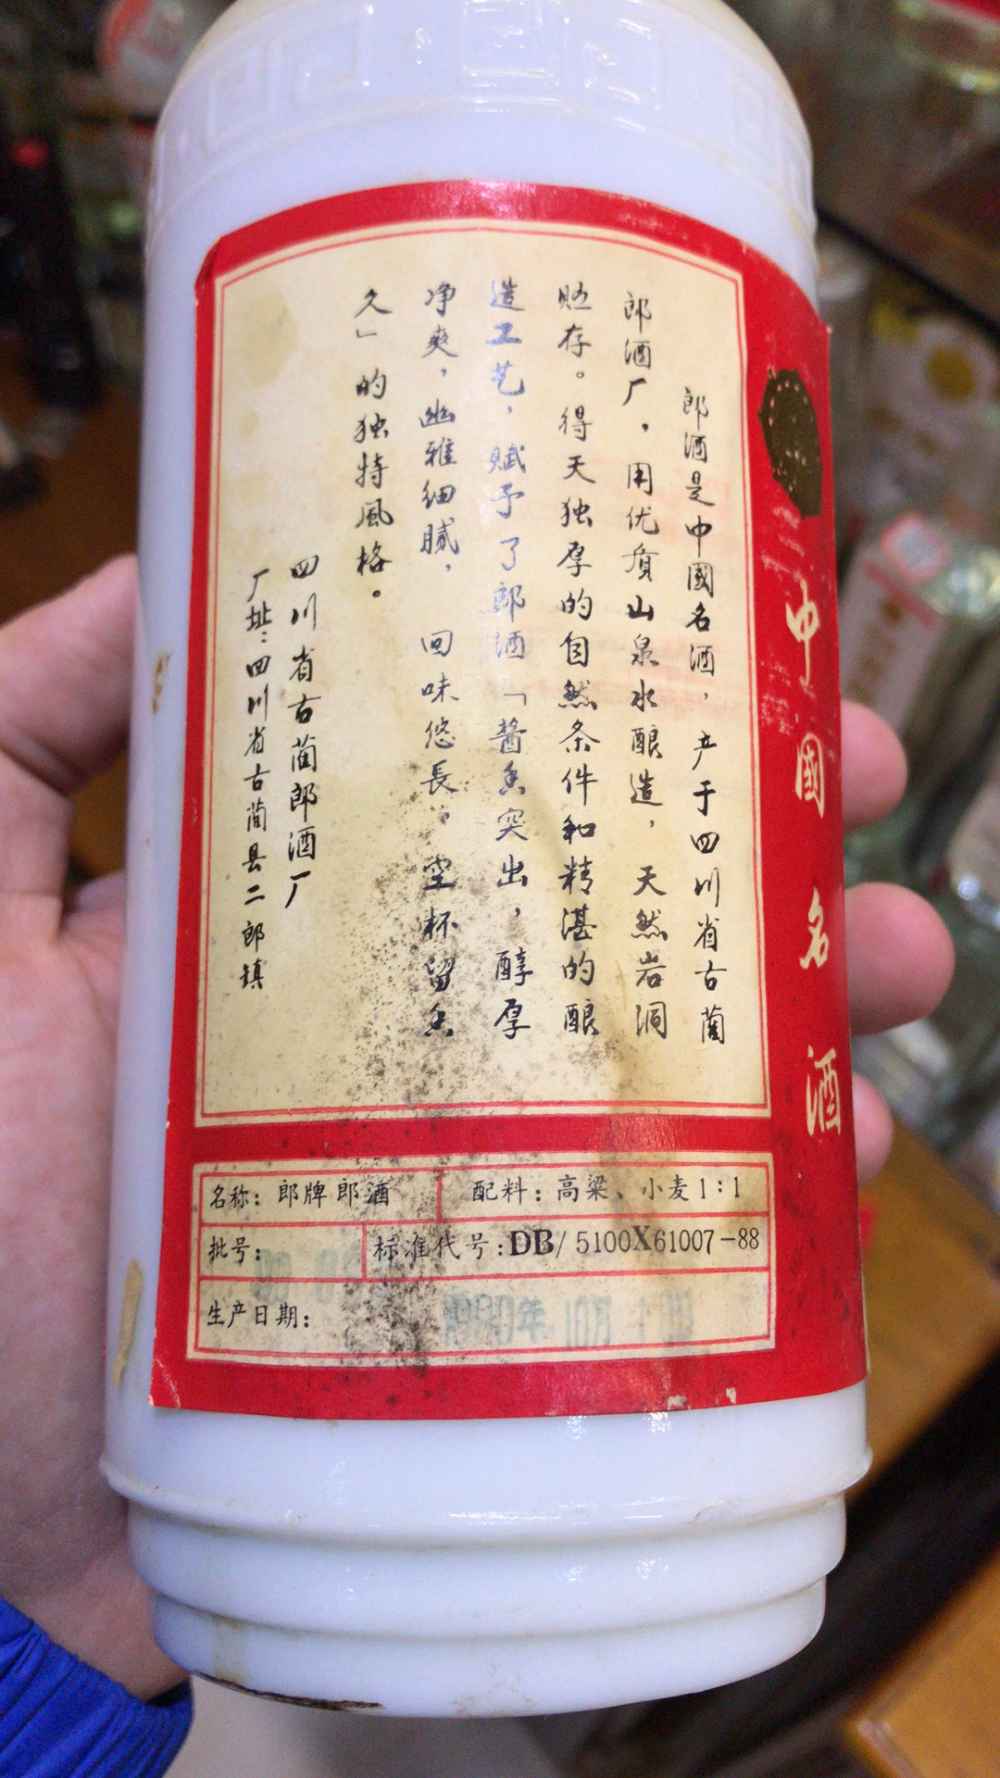 郎酒是中國名酒，产于四川省古蔺
郎酒厂，用优质山泉水酿造，天然岩洞
贮存。得天独厚的自然条件和精湛的酿
造工艺，赋予了郎酒「酱香突出，醇厚
净爽，幽雅细腻，回味悠長，空杯留香
久」的独特風格。
四川省古蔺郎酒厂
厂址：四川省古蔺县二郎镇
中國名酒
名称：郎牌郎酒
配料：高粱、小麦1:1
批号：
标准代号：DB/5100X61007-88
生产日期：1990年10月